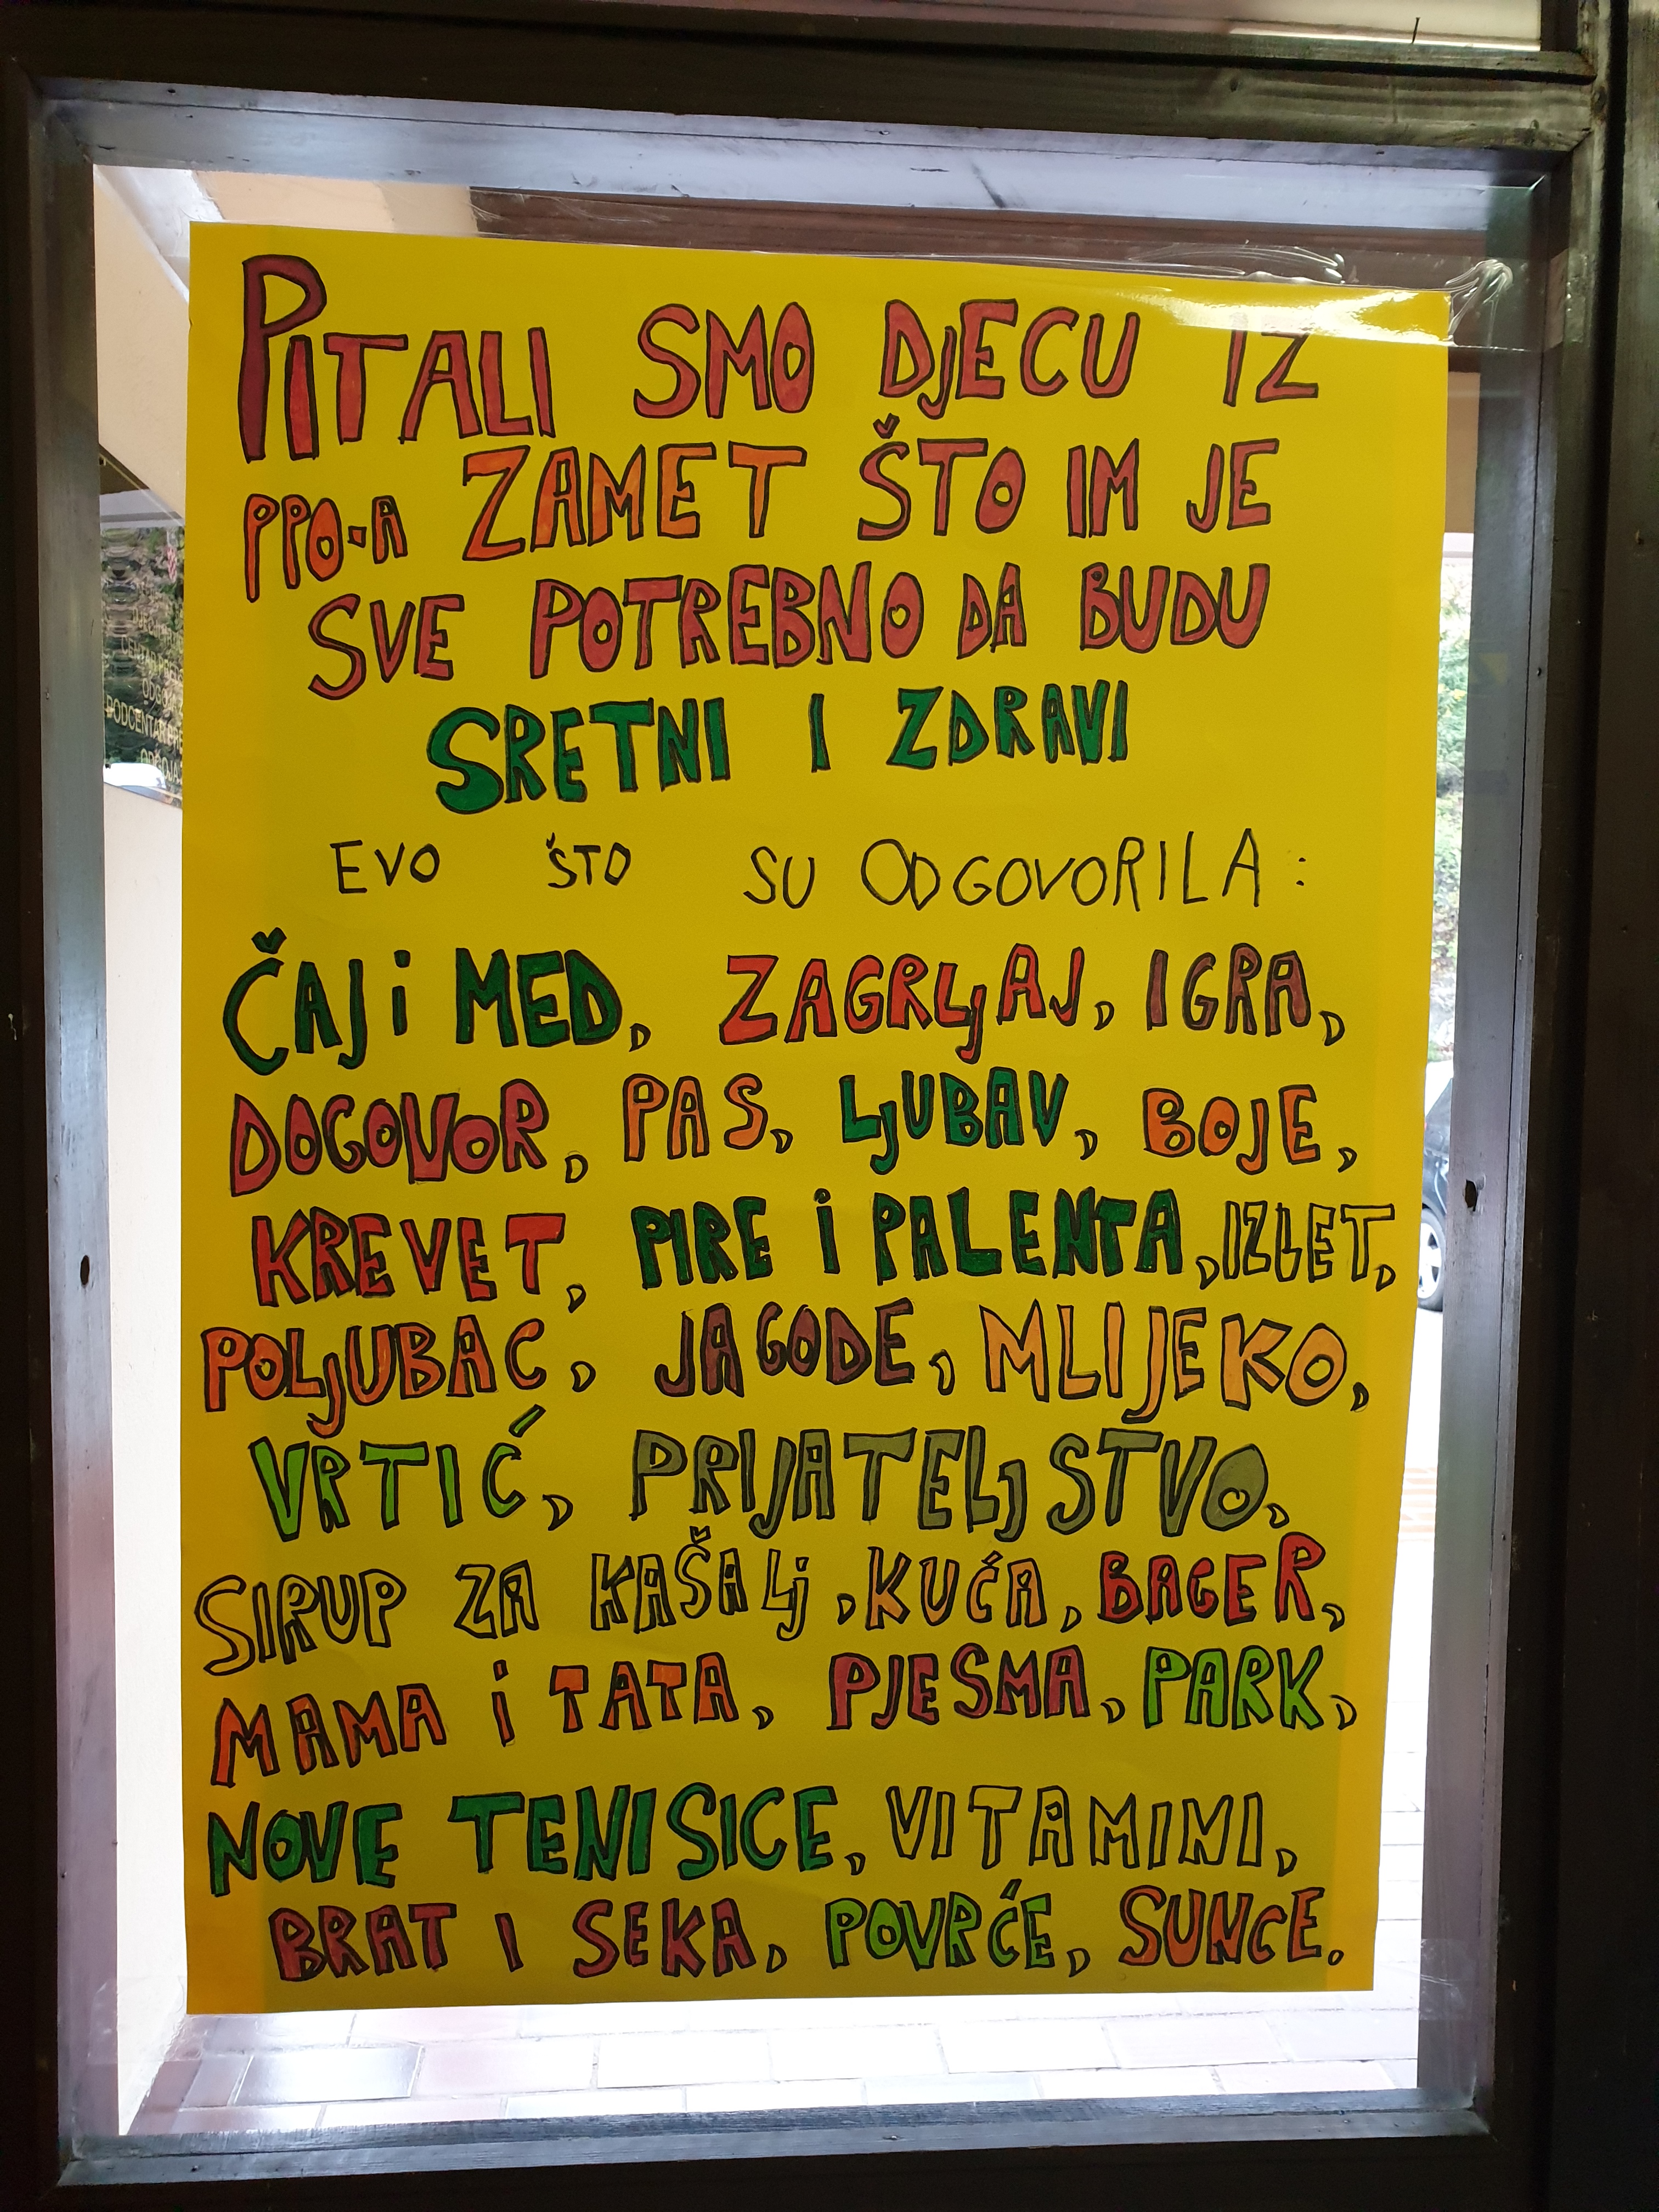 PITALI SMO DJECU IZ
PPO-A ZAMET ŠTO IM JE
SVE POTREBNO DA BUDU
SRETNI I ZDRAVI
EVO ŠTO SU ODGOVORILA:
ČAJ i MED, ZAGRLjAJ, IGRA,
DOGOVOR, PAS, LjUBAV, BOJE,
KREVET, PIRE i PALENTA, IZLET,
POLjUBAC, JAGODE, MLIJEKO,
VRTIĆ, PRIJATELjSTVO,
SIRUP ZA KAŠALj, KUĆA, BAGER,
MAMA i TATA, PJESMA, PARK,
NOVE TENISICE, VITAMINI,
BRAT I SEKA, POVRĆE, SUNCE.